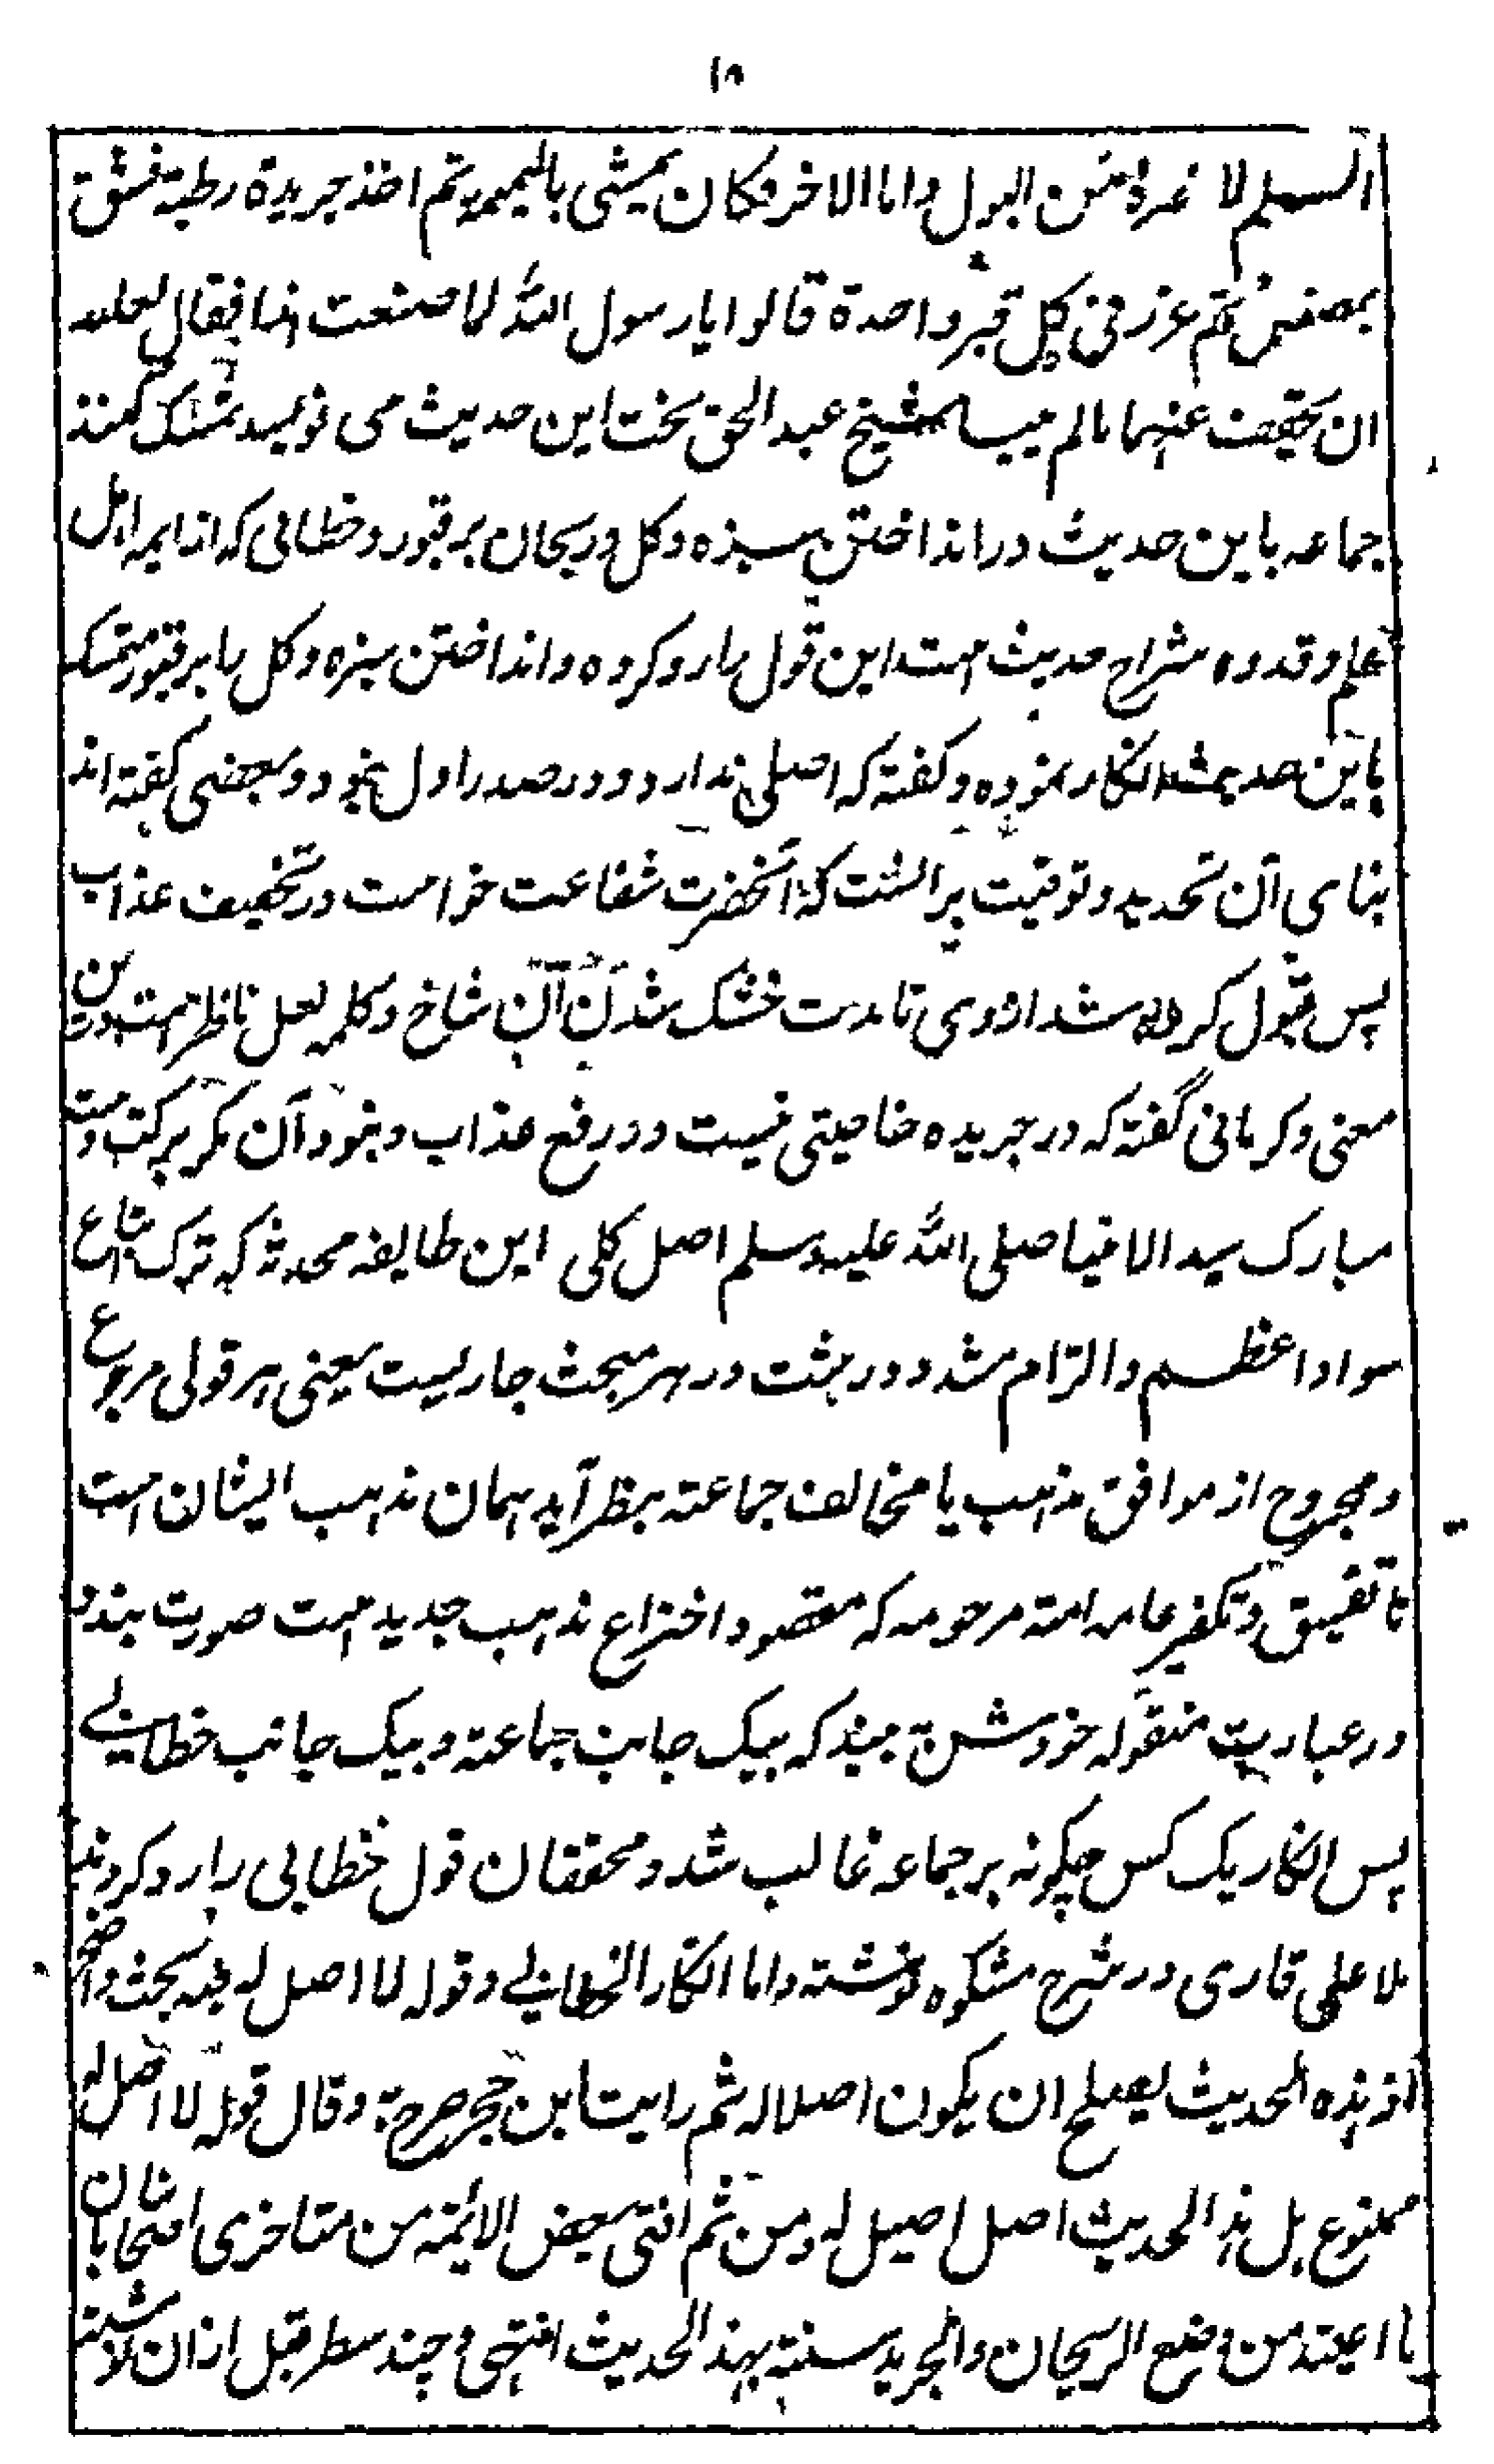 ١٥
المسلم لا نمره من البول واما الاخر فكان يمشى بالنميمة ثم اخذ جريدة رطبة فشق
بصفين ثم غرز فى كل قبر واحدة قالوا يا رسول الله لما صنعت هذا فقال لعله
ان يخفف عنهما ما لم ييبسا شيخ عبد الحق تحت این حدیث می نویسد تمسک کنند
جماعه باین حدیث در انداختن سبزه وکل وریحان بر قبور و خطابی که از ایمه اهل
علم و قدوه شراح حدیث است این قول را رد کرده و انداختن سبزه وکل را بر قبور متمسک
باین حدیث انکار نموده و کفته که اصلی ندارد و در صدر اول نبود و بعضی کفته اند
بنای آن تحدید و توقیت بر انست که آنحضرت شفاعت خواست در تخفیف عذاب
پس قبول کرده شد از وی تا مدت خشک شدن آن شاخ و کلمه لعل ناظر است درین
معنی و کرمانی گفته که در جریده خاصیتی نیست در رفع عذاب و نبود آن مکر ببرکت دست
مبارک سید الانبیا صلی الله علیه وسلم اصل کلی این طایفه محدثه که ترک اتباع
سواد اعظم و التزام شدد در هر مبحث جاریست یعنی هر قولی مرجوع
و مجروح از موافق مذهب یا مخالف جماعته بنظر آید همان مذهب ایشان است
تا تفسیق و تکفیر عامه امته مرحومه که مقصود اختراع مذهب جدید است صورت بندد
در عبارت منقوله خودش بیند که بیک جانب جماعته و بیک جانب خطابی
پس انکار یک کس چکونه بر جماعه غالب شد و محققان قول خطابی را رد کردند
ملا علی قاری در شرح مشکوه نوشته واما انکار الخطابی وقوله لا اصل له فیه بحث واضح
اذ هذه الحدیث یصلح ان یکون اصلا له ثم رایت ابن حجر صرح به وقال قوله لا اصل له
ممنوع بل هذا الحدیث اصل اصیل له ومن ثم افتی بعض الائمة من متاخری اصحابنا بان
ما اعتید من وضع الریحان والجرید سنة بهذ الحدیث انتهی و چند سطر قبل ازان